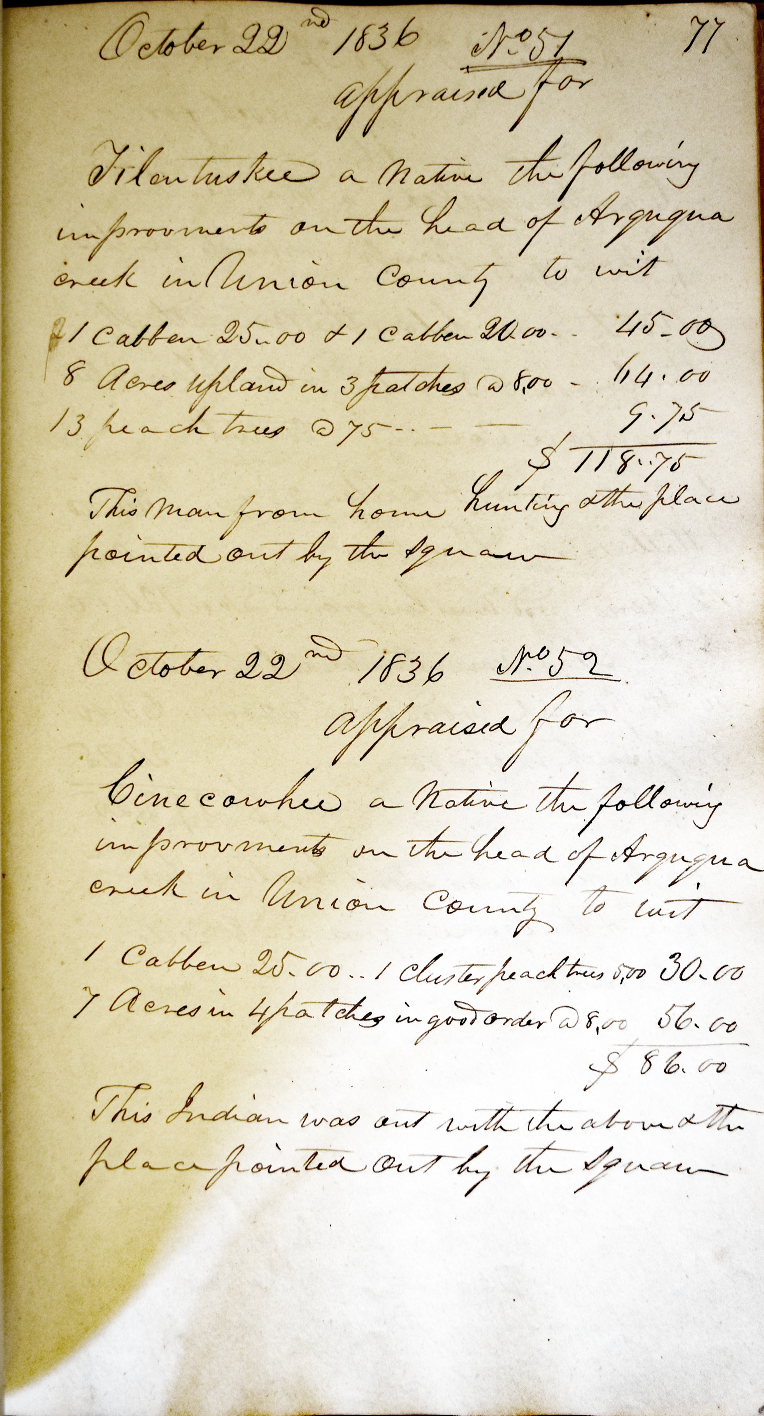 October 22nd 1836 No 51 77
appraised for
Tilentuskee a Native the following
improvments on the head of Argugua
creek in Union County to wit
1 Cabben 25..00 & 1 Cabben 20.00.. 45.00
8 Acres upland in 3 patches @ 8,00 - 64.00
13 peach trees @ 75 -..- - 9.75
$ 118.75
This man from home hunting & the place
pointed out by the squaw
October 22nd 1836 No 52
appraised for
Cinecowhee a Native the following
improvments on the head of Argugua
creek in Union County to wit
1 Cabben 25.00.. 1 cluster peach trees 5,00 30.00
7 Acres in 4 patches in good order @ 8,00 56.00
$ 86.00
This Indian was out with the above & the
place pointed out by the squaw